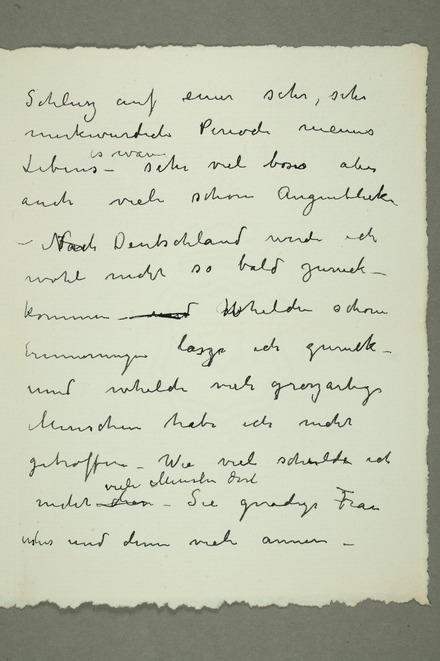 Schluss auf einer sehr, sehr
merkwurdich Periode meines
es war
Lebens – sehr viel boses aber
auch viele schone Augenblicke
– Nach Deutschland werde ich
wohl nicht so bald zuruck-
kommen – und Whelde schone
Erinnerungen lasze ich zuruck –
und whelde viele groszartige
Menschen habe ich nicht
getroffen – Wie viel schulde ich
viele Menschen dort
nicht – Sie gnadige Frau
und denn viele annen –